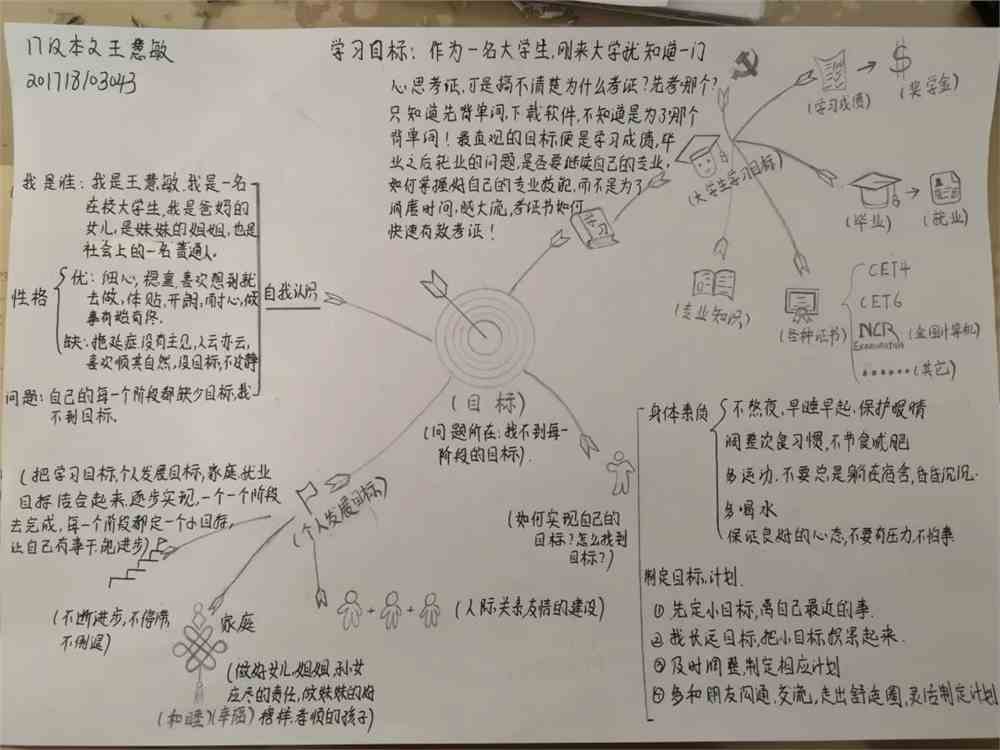 17汉本文王慧敏
201718103043
学习目标：作为一名大学生，刚来大学就知道一门
心思考证，可是搞不清楚为什么考证？先考哪个？
只知道先背单词，下载软件，不知道是为了哪个
背单词！最直观的目标便是学习成绩，毕
业之后就业的问题，是否要继续自己的专业，
如何掌握好自己的专业技能，而不是为了
消磨时间，随大流，考证书如何
快速有效考证！
学习
(大学生学习目标)
(学习成绩)
$
(奖学金)
(毕业)
(就业)
(专业知识)
(各种证书)
CET4
CET6
NCR
Examination
(全国计算机)
......(其它)
我是谁：我是王慧敏，我是一名
在校大学生，我是爸妈的
女儿，是妹妹的姐姐，也是
社会上的一名普通人。
性格
优：细心，稳重，喜欢想到就
去做，体贴，开朗，耐心，做
事有始有终。
缺：拖延症，没有主见，人云亦云，
喜欢顺其自然，没目标，不安静
问题：自己的每一个阶段都缺少目标，找
不到目标。
自我认识
(目标)
(问题所在：找不到每一
阶段的目标)
(如何实现自己的
目标？怎么找到
目标？)
身体素质
不熬夜，早睡早起，保护眼睛
调整饮食习惯，不节食减肥
多运动，不要总是躺在宿舍，昏昏沉沉.
多喝水
保证良好的心态，不要有压力，不怕事
制定目标，计划.
①先定小目标，离自己最近的事.
②找长远目标，把小目标积累起来.
③及时调整，制定相应计划
④多和朋友沟通，交流，走出舒适圈，灵活制定计划
(个人发展目标)
(把学习目标，个人发展目标，家庭，就业
目标结合起来，逐步实现，一个一个阶段
去完成，每一个阶段都定一个小目标，
让自己有事干，能进步)
(不断进步，不停滞
不倒退)
家庭
(做好女儿，姐姐，孙女
应尽的责任，做妹妹的好
榜样孝顺的孩子)
(和睦)(幸福)
(人际关系友情的建设)